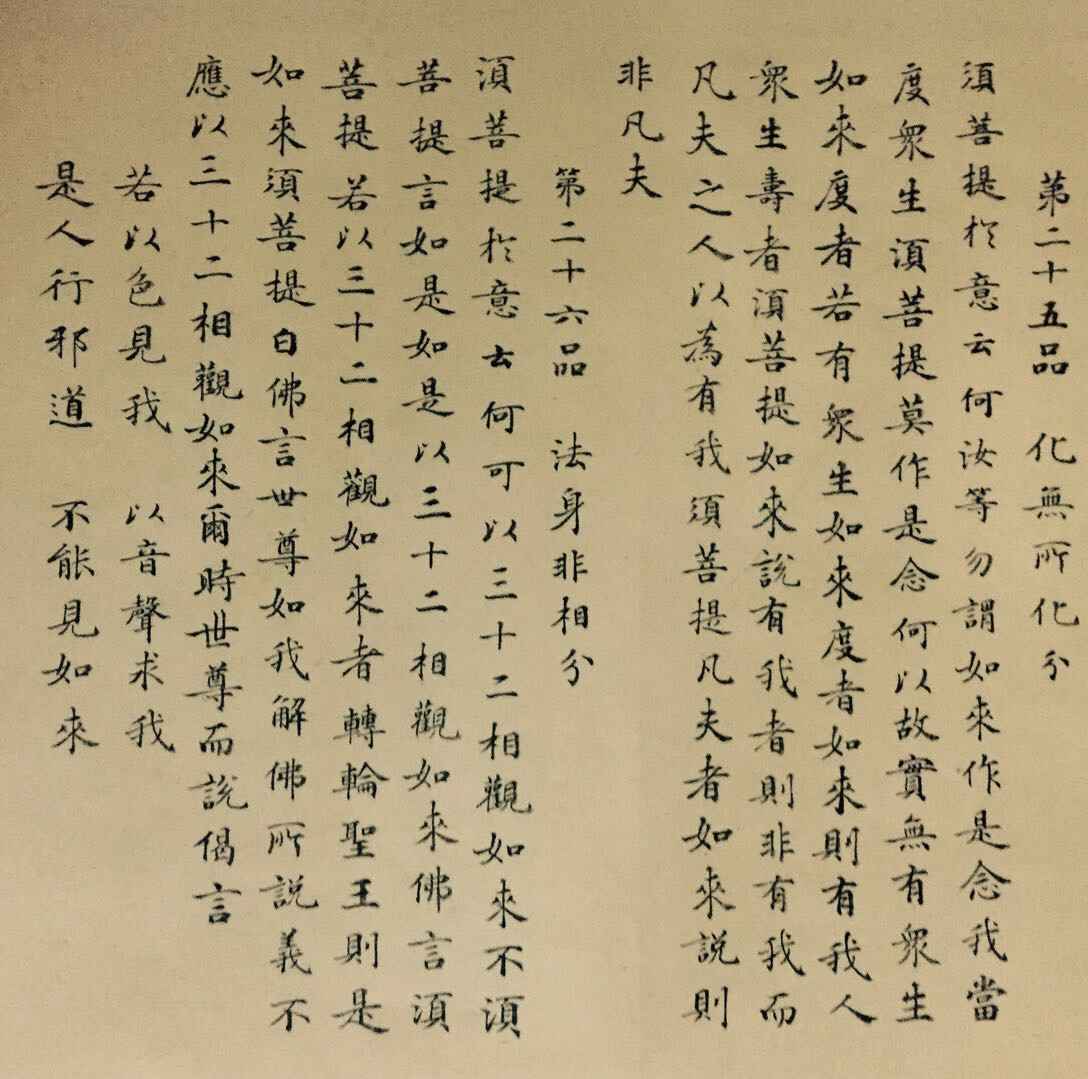 第二十五品 化無所化分
須菩提於意云何汝等勿謂如來作是念我當
度衆生須菩提莫作是念何以故實無有衆生
如來度者若有衆生如來度者如來則有我人
衆生壽者須菩提如來説有我者則非有我而
凡夫之人以為有我須菩提凡夫者如來説則
非凡夫
第二十六品 法身非相分
須菩提於意云何可以三十二相觀如來不須
菩提言如是如是以三十二相觀如來佛言須
菩提若以三十二相觀如來者轉輪聖王則是
如來須菩提白佛言世尊如我解佛所説義不
應以三十二相觀如來爾時世尊而説偈言
若以色見我 以音聲求我
是人行邪道 不能見如來